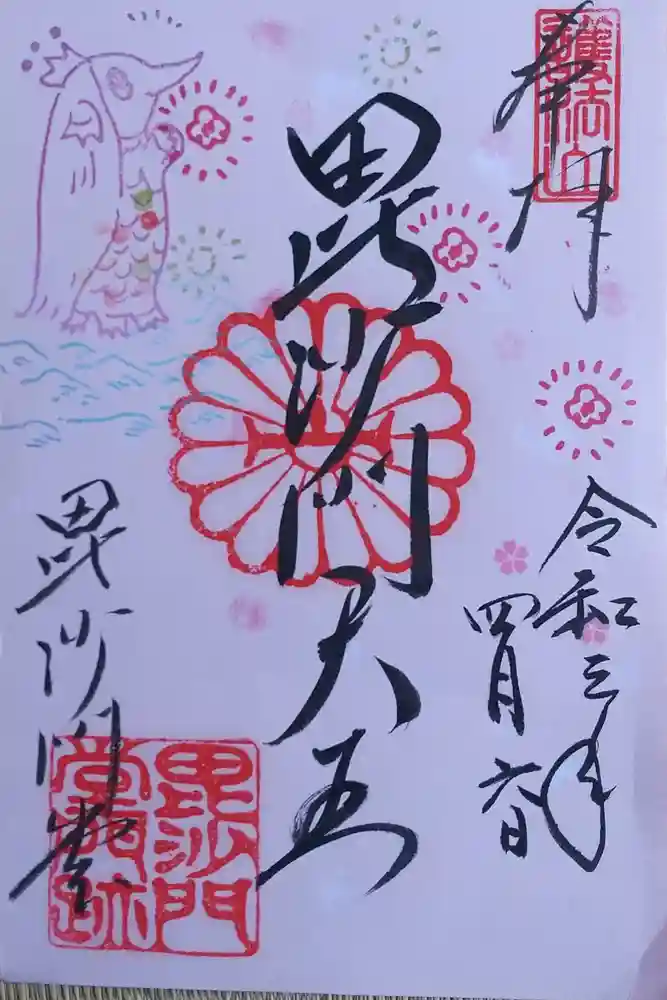 奉拝
護法山
令和三年
四月六日
毘沙門天王
毘沙門堂
毘沙門
堂門跡